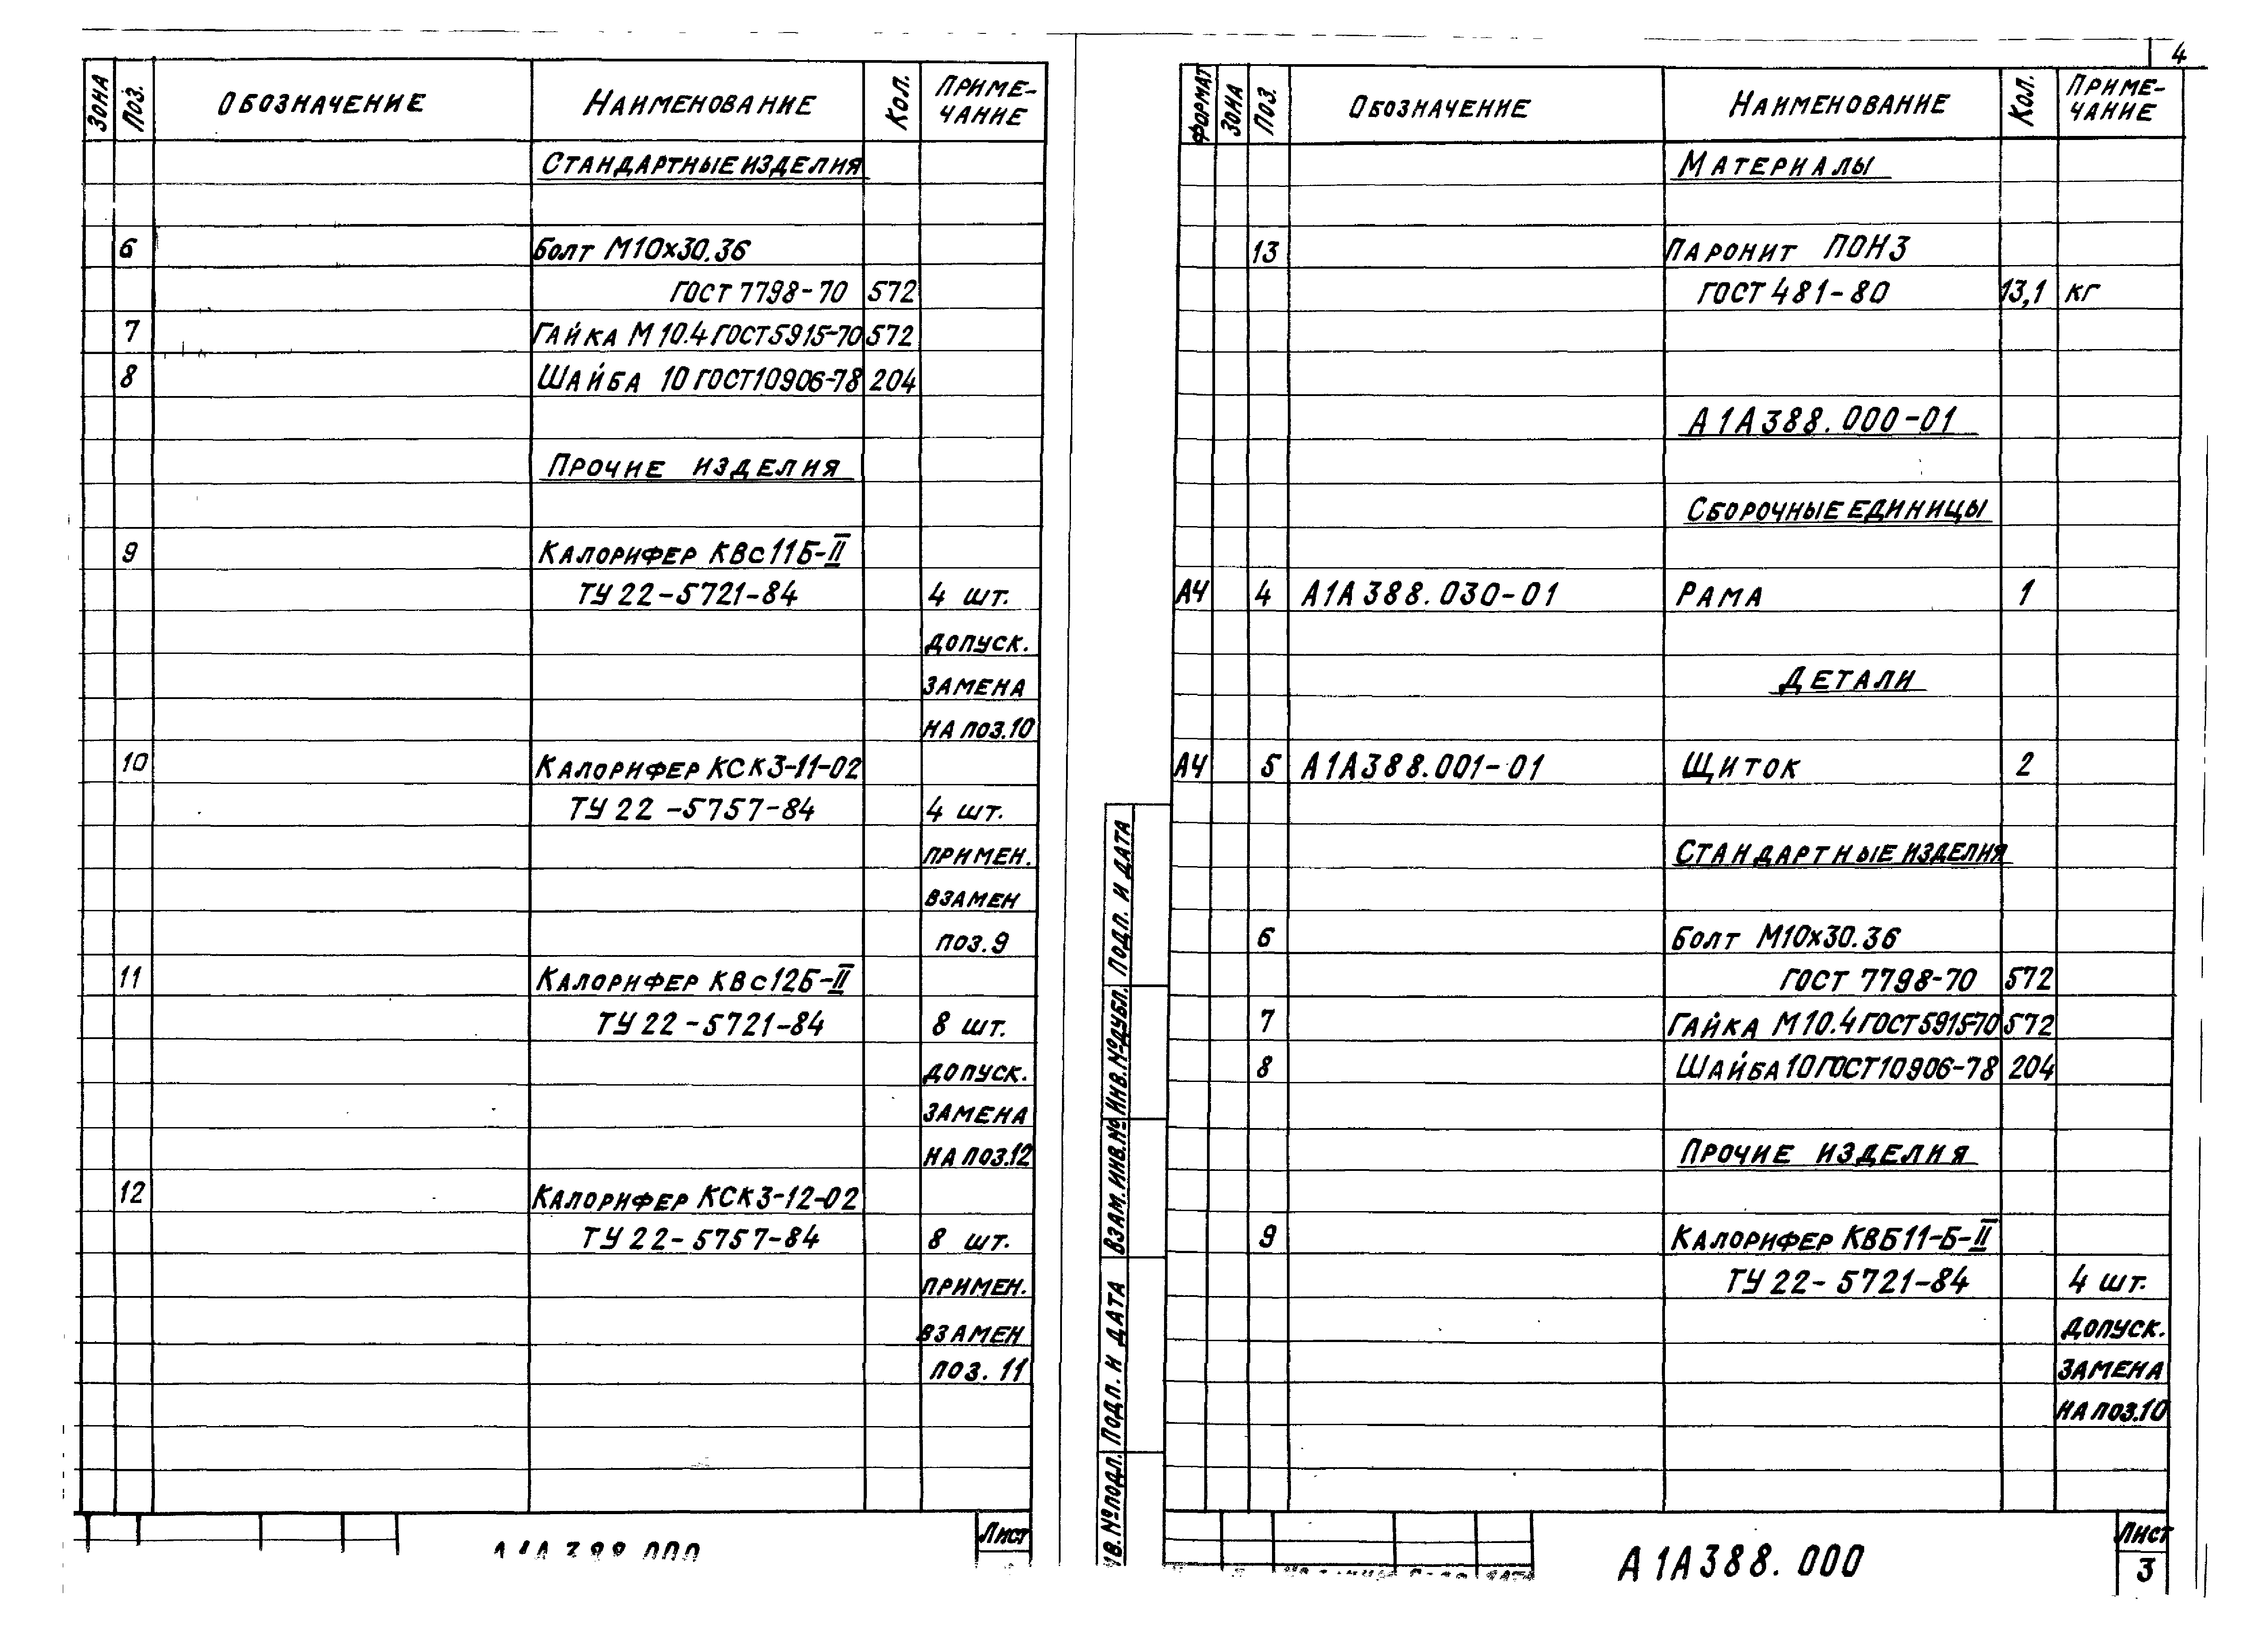 ЗОНА ПОЗ. ОБОЗНАЧЕНИЕ НАИМЕНОВАНИЕ КОЛ. ПРИМЕ-
ЧАНИЕ
СТАНДАРТНЫЕ ИЗДЕЛИЯ
6 БОЛТ М10х30.36
ГОСТ 7798-70 572
7 ГАЙКА М10.4 ГОСТ 5915-70 572
8 ШАЙБА 10 ГОСТ 10906-78 204
ПРОЧИЕ ИЗДЕЛИЯ
9 КАЛОРИФЕР КВс11Б-II
ТУ 22-5721-84 4 шт.
ДОПУСК.
ЗАМЕНА
НА ПОЗ.10
10 КАЛОРИФЕР КСК3-11-02
ТУ 22-5757-84 4 шт.
ПРИМЕН.
ВЗАМЕН
ПОЗ.9
11 КАЛОРИФЕР КВс12Б-II
ТУ 22-5721-84 8 шт.
ДОПУСК.
ЗАМЕНА
НА ПОЗ.12
12 КАЛОРИФЕР КСК3-12-02
ТУ 22-5757-84 8 шт.
ПРИМЕН.
ВЗАМЕН
ПОЗ. 11
А1А388.000
Лист
4
ФОРМАТ ЗОНА ПОЗ. ОБОЗНАЧЕНИЕ НАИМЕНОВАНИЕ КОЛ. ПРИМЕ-
ЧАНИЕ
МАТЕРИАЛЫ
13 ПАРОНИТ ПОН3
ГОСТ 481-80 13,1 кг
А1А388.000-01
СБОРОЧНЫЕ ЕДИНИЦЫ
А4 4 А1А388.030-01 РАМА 1
ДЕТАЛИ
А4 5 А1А388.001-01 ЩИТОК 2
СТАНДАРТНЫЕ ИЗДЕЛИЯ
6 БОЛТ М10х30.36
ГОСТ 7798-70 572
7 ГАЙКА М10.4 ГОСТ 5915-70 572
8 ШАЙБА 10 ГОСТ 10906-78 204
ПРОЧИЕ ИЗДЕЛИЯ
9 КАЛОРИФЕР КВБ11-Б-II
ТУ 22-5721-84 4 шт.
ДОПУСК.
ЗАМЕНА
НА ПОЗ.10
ПОДП. И ДАТА
ИНВ.№ДУБЛ.
ВЗАМ.ИНВ.№
ПОДП. И ДАТА
ИНВ.№ПОДЛ.
А1А388.000
Лист
3